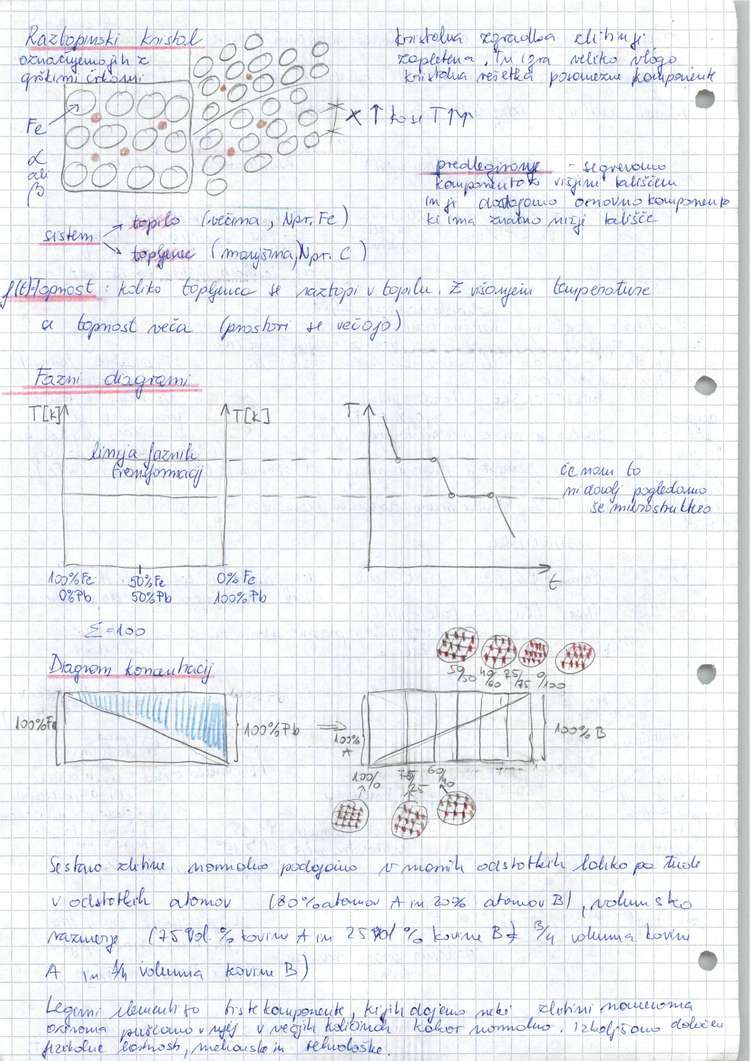 Raztopinski kristal
označujemo jih z
grškimi črkami
Fe
α
ali
β
kristalna zgradba zlitin je
zapletena. Tu igra veliko vlogo
kristalna rešetka posamezne komponente
x ↑ ko se T↑
predlegiranje - segrevamo
komponento z višjim tališčem
in ji dodajamo osnovno komponento
ki ima znatno nižji tališče
sistem
topilo (večina, Npr. Fe)
topljenec (manjšina, Npr. C)
f(t) Topnost : koliko topljenca se raztopi v topilu. Z višanjem temperature
je topnost veča (prostori se večajo)
Fazni diagrami
T[K]
T[K]
T
linija faznih
transformacij
če nam to
ni dovolj pogledamo
še mikrostrukturo
100%Fe
0%Pb
50%Fe
50%Pb
0%Fe
100%Pb
t
Σ=100
Diagram koncentracij
50/50
40/60
25/75
0/100
100%Fe
100%Pb
⇒
100%
A
100% B
100/0
75/25
60/40
Sestavo zlitine normalno podajamo v masnih odstotkih lahko pa tudi
v odstotkih atomov (80%atomov A in 20% atomov B), volumsko
razmerje (75 Vol. % kovine A in 25 Vol % kovine B 3/4 volumna kovine
A in 1/4 volumna kovine B)
Legirni elementi so tiste komponente, ki jih dajemo neki zlitini namenoma
oziroma puščamo v njej v večjih količinah kakor normalno. Izboljšamo določene
fizikalne lastnosti, mehanske in tehnološke.